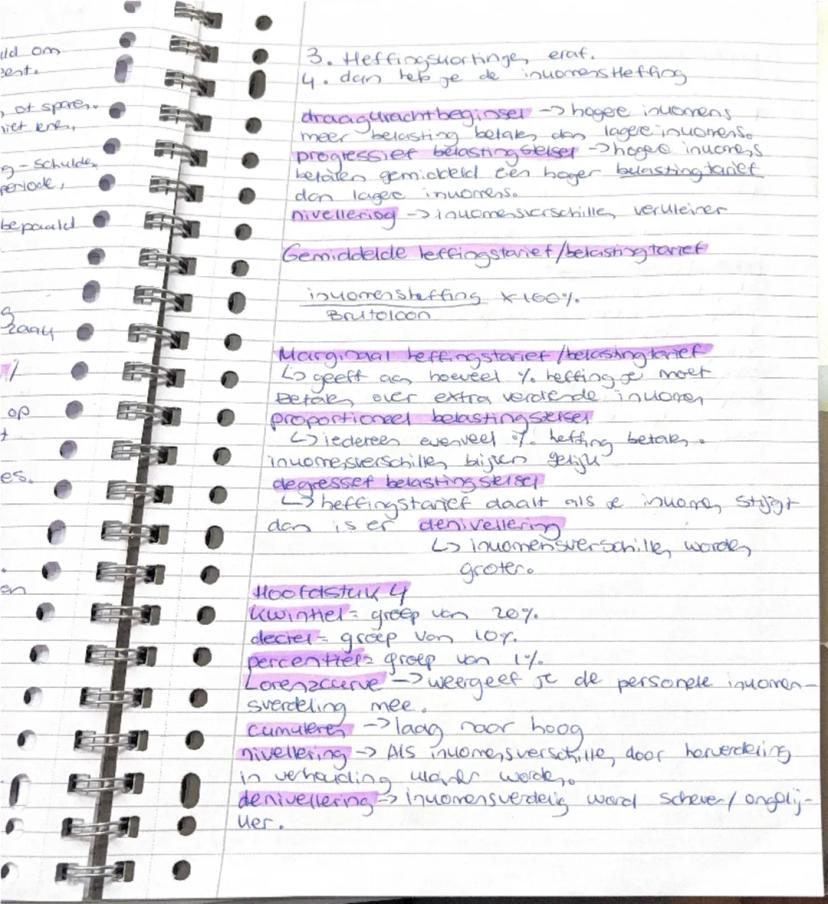 uld om
ent.
, of sparen.
niet ene,
g - schulden
periode,
bepaald
op
es.
en
3. Heffingskortingen eraf.
4. dan heb je de inkomensheffing
draagkrachtbeginsel -> hogee inkomens
meer belasting betalen dan lagere inkomens.
progressief belastingstelsel -> hogee inkomens
betalen gemiddeld een hoger belastingtarief
dan lagee inkomens.
nivellering -> inkomensverschillen verkleinen
Gemiddelde heffingstarief/belastingtarief
inkomensheffing x 100%.
Brutoloon
Marginaal heffingstarief/belastingtarief
↳ geeft aan hoeveel % heffing je moet
betalen over extra verdiende inkomen
proportioneel belastingstelsel
↳ iedereen evenveel % heffing betalen.
inkomensverschillen blijven gelijk
degressief belastingstelsel
↳ heffingstarief daalt als je inkomen stijgt
dan is er denivellering
↳ inkomensverschillen worden
groter.
Hoofdstuk 4
kwintiel = groep van 20%.
deciel = groep van 10%.
percentiel = groep van 1%.
Lorenzcurve -> weergeef je de personele inkomen-
sverdeling mee.
cumuleren -> laag naar hoog
nivellering -> Als inkomensverschillen door herverdeling
in verhouding kleiner worden.
denivellering -> inkomensverdeling word schever/ongelij-
ker.